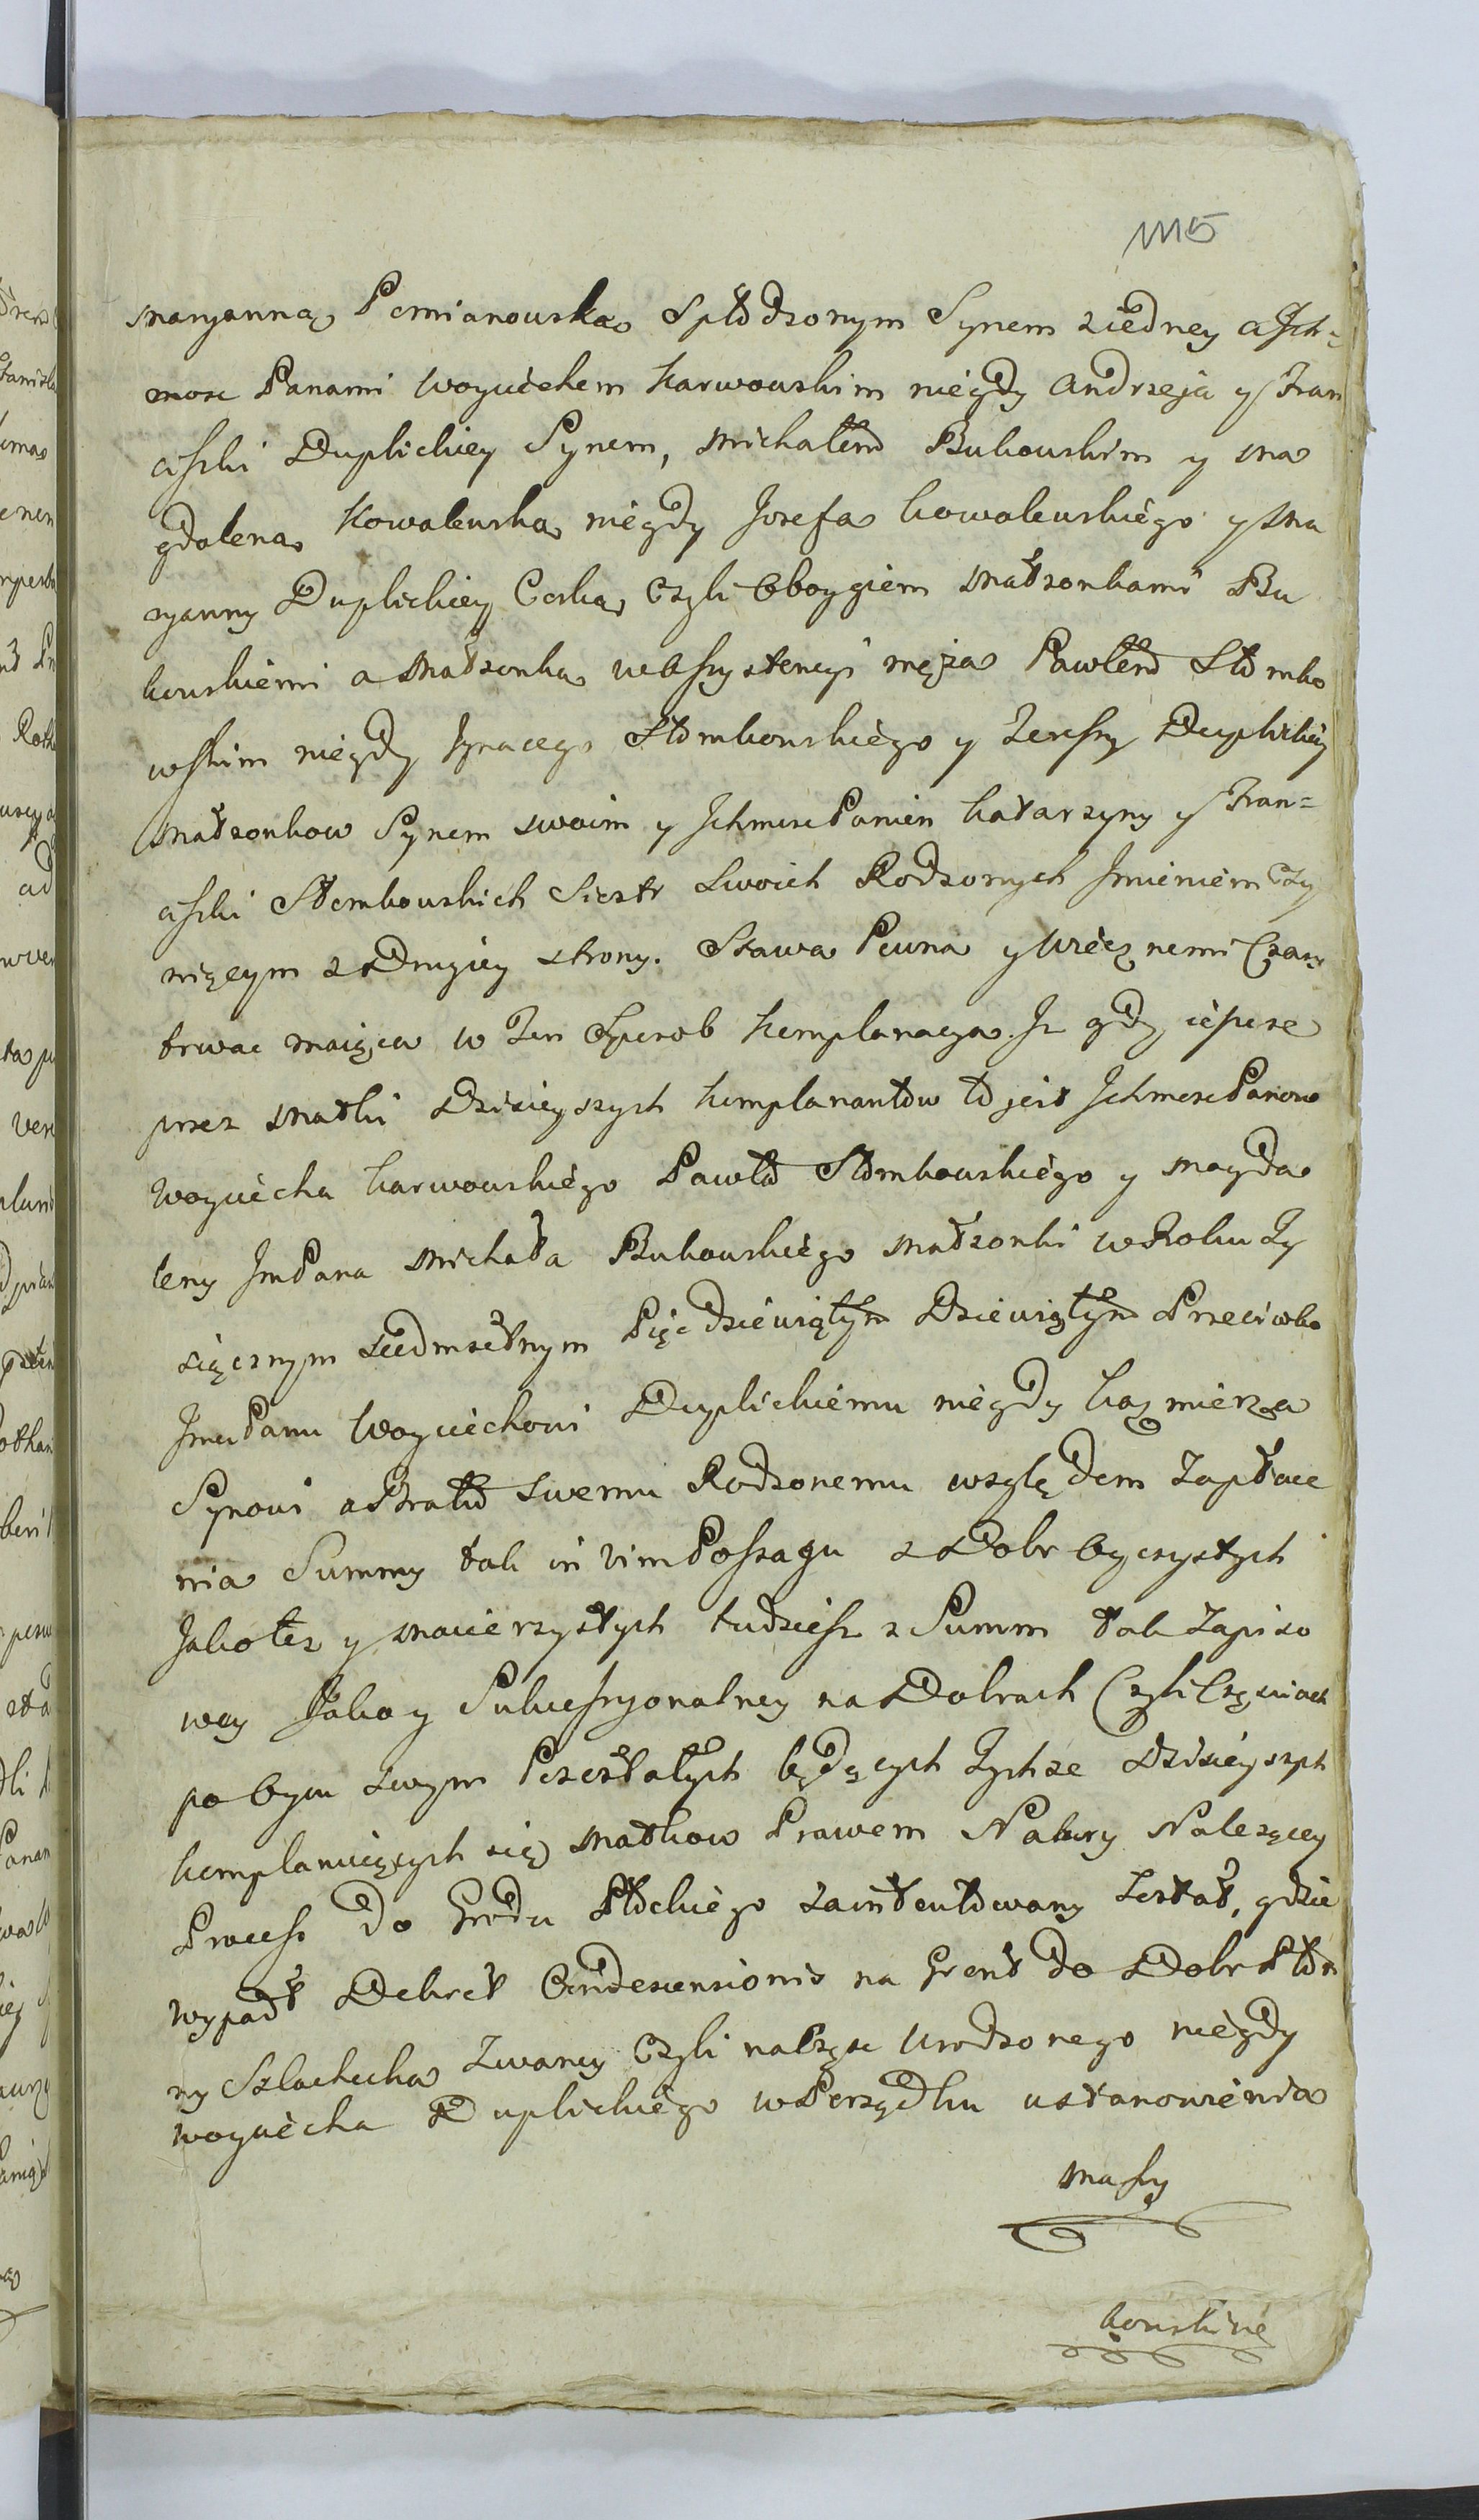 1115
Maryanną Pomianowską Spłodzonym Synem zjedney a Jch=
mosc Panami Woyciechem Karwowskim niegdy Andrzeja y Fran
ciszki Duplickiey Synem, Michałem Bukowskim y Ma
gdaleną Kowalewską niegdy Jozefa Kowalewskiego y Ma
ryanny Duplickiey Corką czyli Oboygiem Małzonkami Bu
kowskiemi a Małzonką w Assystencyi męza Pawłem Słomko
wskim niegdy Jgnacego Słomkowskiego y Teressy Duplickiey
Małzonkow Synem swoim y Jchmosc Panien Katarzyny y Fran=
ciszki Słomkowskich Siestr Swoich Rodzonych Jmieniem Czy
niącym z Drugiey strony. Stawa Pewna y Wiecznemi Czasy
trwac maiąca w Ten Sposob Komplanacya. Jz gdy iesce
przez Matki Dzisieyszych komplanantow to jest Jchmosc Panow
Woyciecha Karwowskiego Pawła Słomkowskiego y Magda
leny Jm Pana Michała Bukowskiego Małzonki w Roku Ty
siącznym Siedmsetnym Pięcdziesiątym Dziewiątym Przeciwko
Jmci Panu Woyciechowi Duplickiemu niegdy Kazmierza
Synowi a Bratu Swemu Rodzonemu względem Zapłace
nia Summy tak in vim Possagu z Dobr Oyczystych
Jako tez y Macierzystych tudziesz z Summ tak Zapiso
wey Jako y Sukcessyonalney na Dobrach Czyli Częsciach
po Oycu Swym Pozostałych będących Tychze Dzisieyszych
komplanuiących się Matkow Prawem Natury Nalezącey
Process do Grodu Płockiego Zaintentowany Został, gdzie
wypadł Dekret Condescensionis na Gront do Dobr Sło
ny Szlachecka Zwaney Czyli na Częsc Urodzonego niegdy
Woyciecha Duplickiego w Porządku ustanowienia
Massy
kowskiue